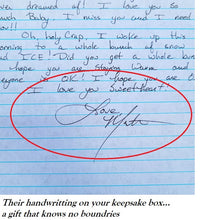 ven dreamed of! I love you so
uch Baby! I miss you and I need
ou!!
Oh, holy Crap, I woke up this
orning to a whole bunch of snow
nd ICE! Did you get a whole bun
hope you are staying warm and
eryone is OK! I hope you are
I love you Sweetheart.
Love
Their handwriting on your keepsake box...
a gift that knows no boundries